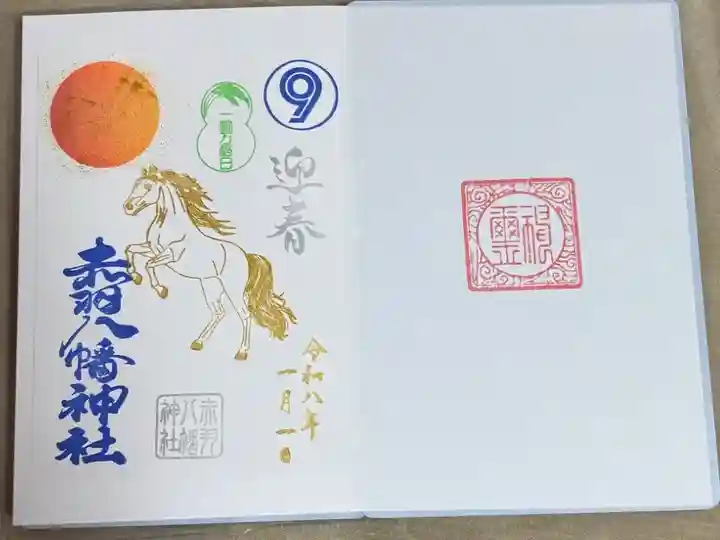 ⑨
一粒万倍日
迎春
令和八年
一月一日
赤羽八幡神社
赤羽
八幡
神社